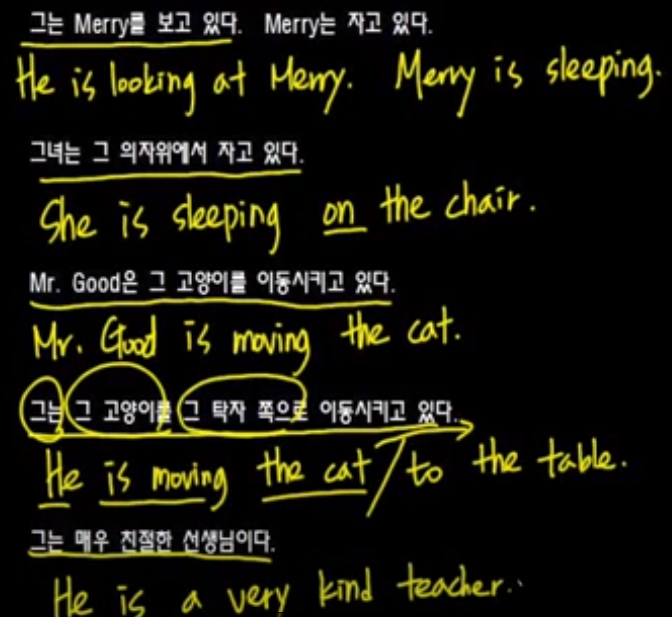 그는 Merry를 보고 있다. Merry는 자고 있다.
He is looking at Merry. Merry is sleeping.
그녀는 그 의자위에서 자고 있다.
She is sleeping on the chair.
Mr. Good은 그 고양이를 이동시키고 있다.
Mr. Good is moving the cat.
그는 그 고양이를 그 탁자 쪽으로 이동시키고 있다.
He is moving the cat / to the table.
그는 매우 친절한 선생님이다.
He is a very kind teacher..